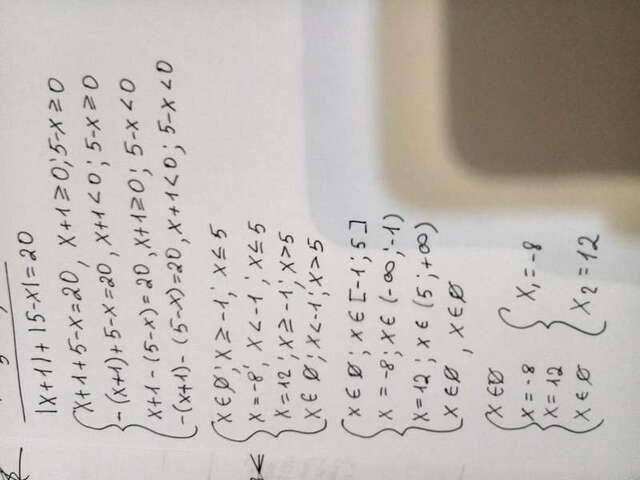 |x+1|+|5-x|=20
x+1+5-x=20, x+1≥0; 5-x≥0
-(x+1)+5-x=20, x+1<0; 5-x≥0
x+1-(5-x)=20, x+1≥0; 5-x<0
-(x+1)-(5-x)=20, x+1<0; 5-x<0
x∈∅; x≥-1; x≤5
x=-8; x<-1; x≤5
x=12; x≥-1; x>5
x∈∅; x<-1; x>5
x∈∅; x∈[-1;5]
x=-8; x∈(-∞;-1)
x=12; x∈(5;+∞)
x∈∅, x∈∅
x∈∅
x=-8
x=12
x∈∅
x₁=-8
x₂=12